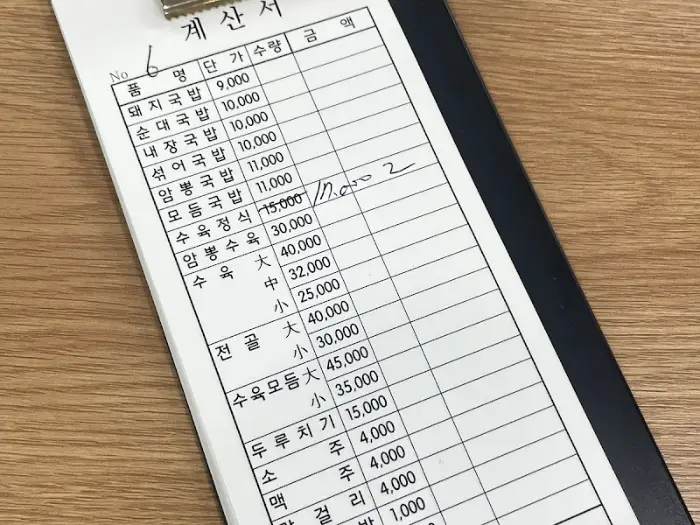 계산서
No 6
품 명 단가 수량 금 액
돼지국밥 9,000
순대국밥 10,000
내장국밥 10,000
섞어국밥 10,000
암뽕국밥 11,000
모듬국밥 11,000
수육정식 15,000 17,000 2
암뽕수육 30,000
수 육 大 40,000
中 32,000
小 25,000
전 골 大 40,000
小 30,000
수육모듬 大 45,000
小 35,000
두루치기 15,000
소 주 4,000
맥 주 4,000
걸리 4,000
1,000